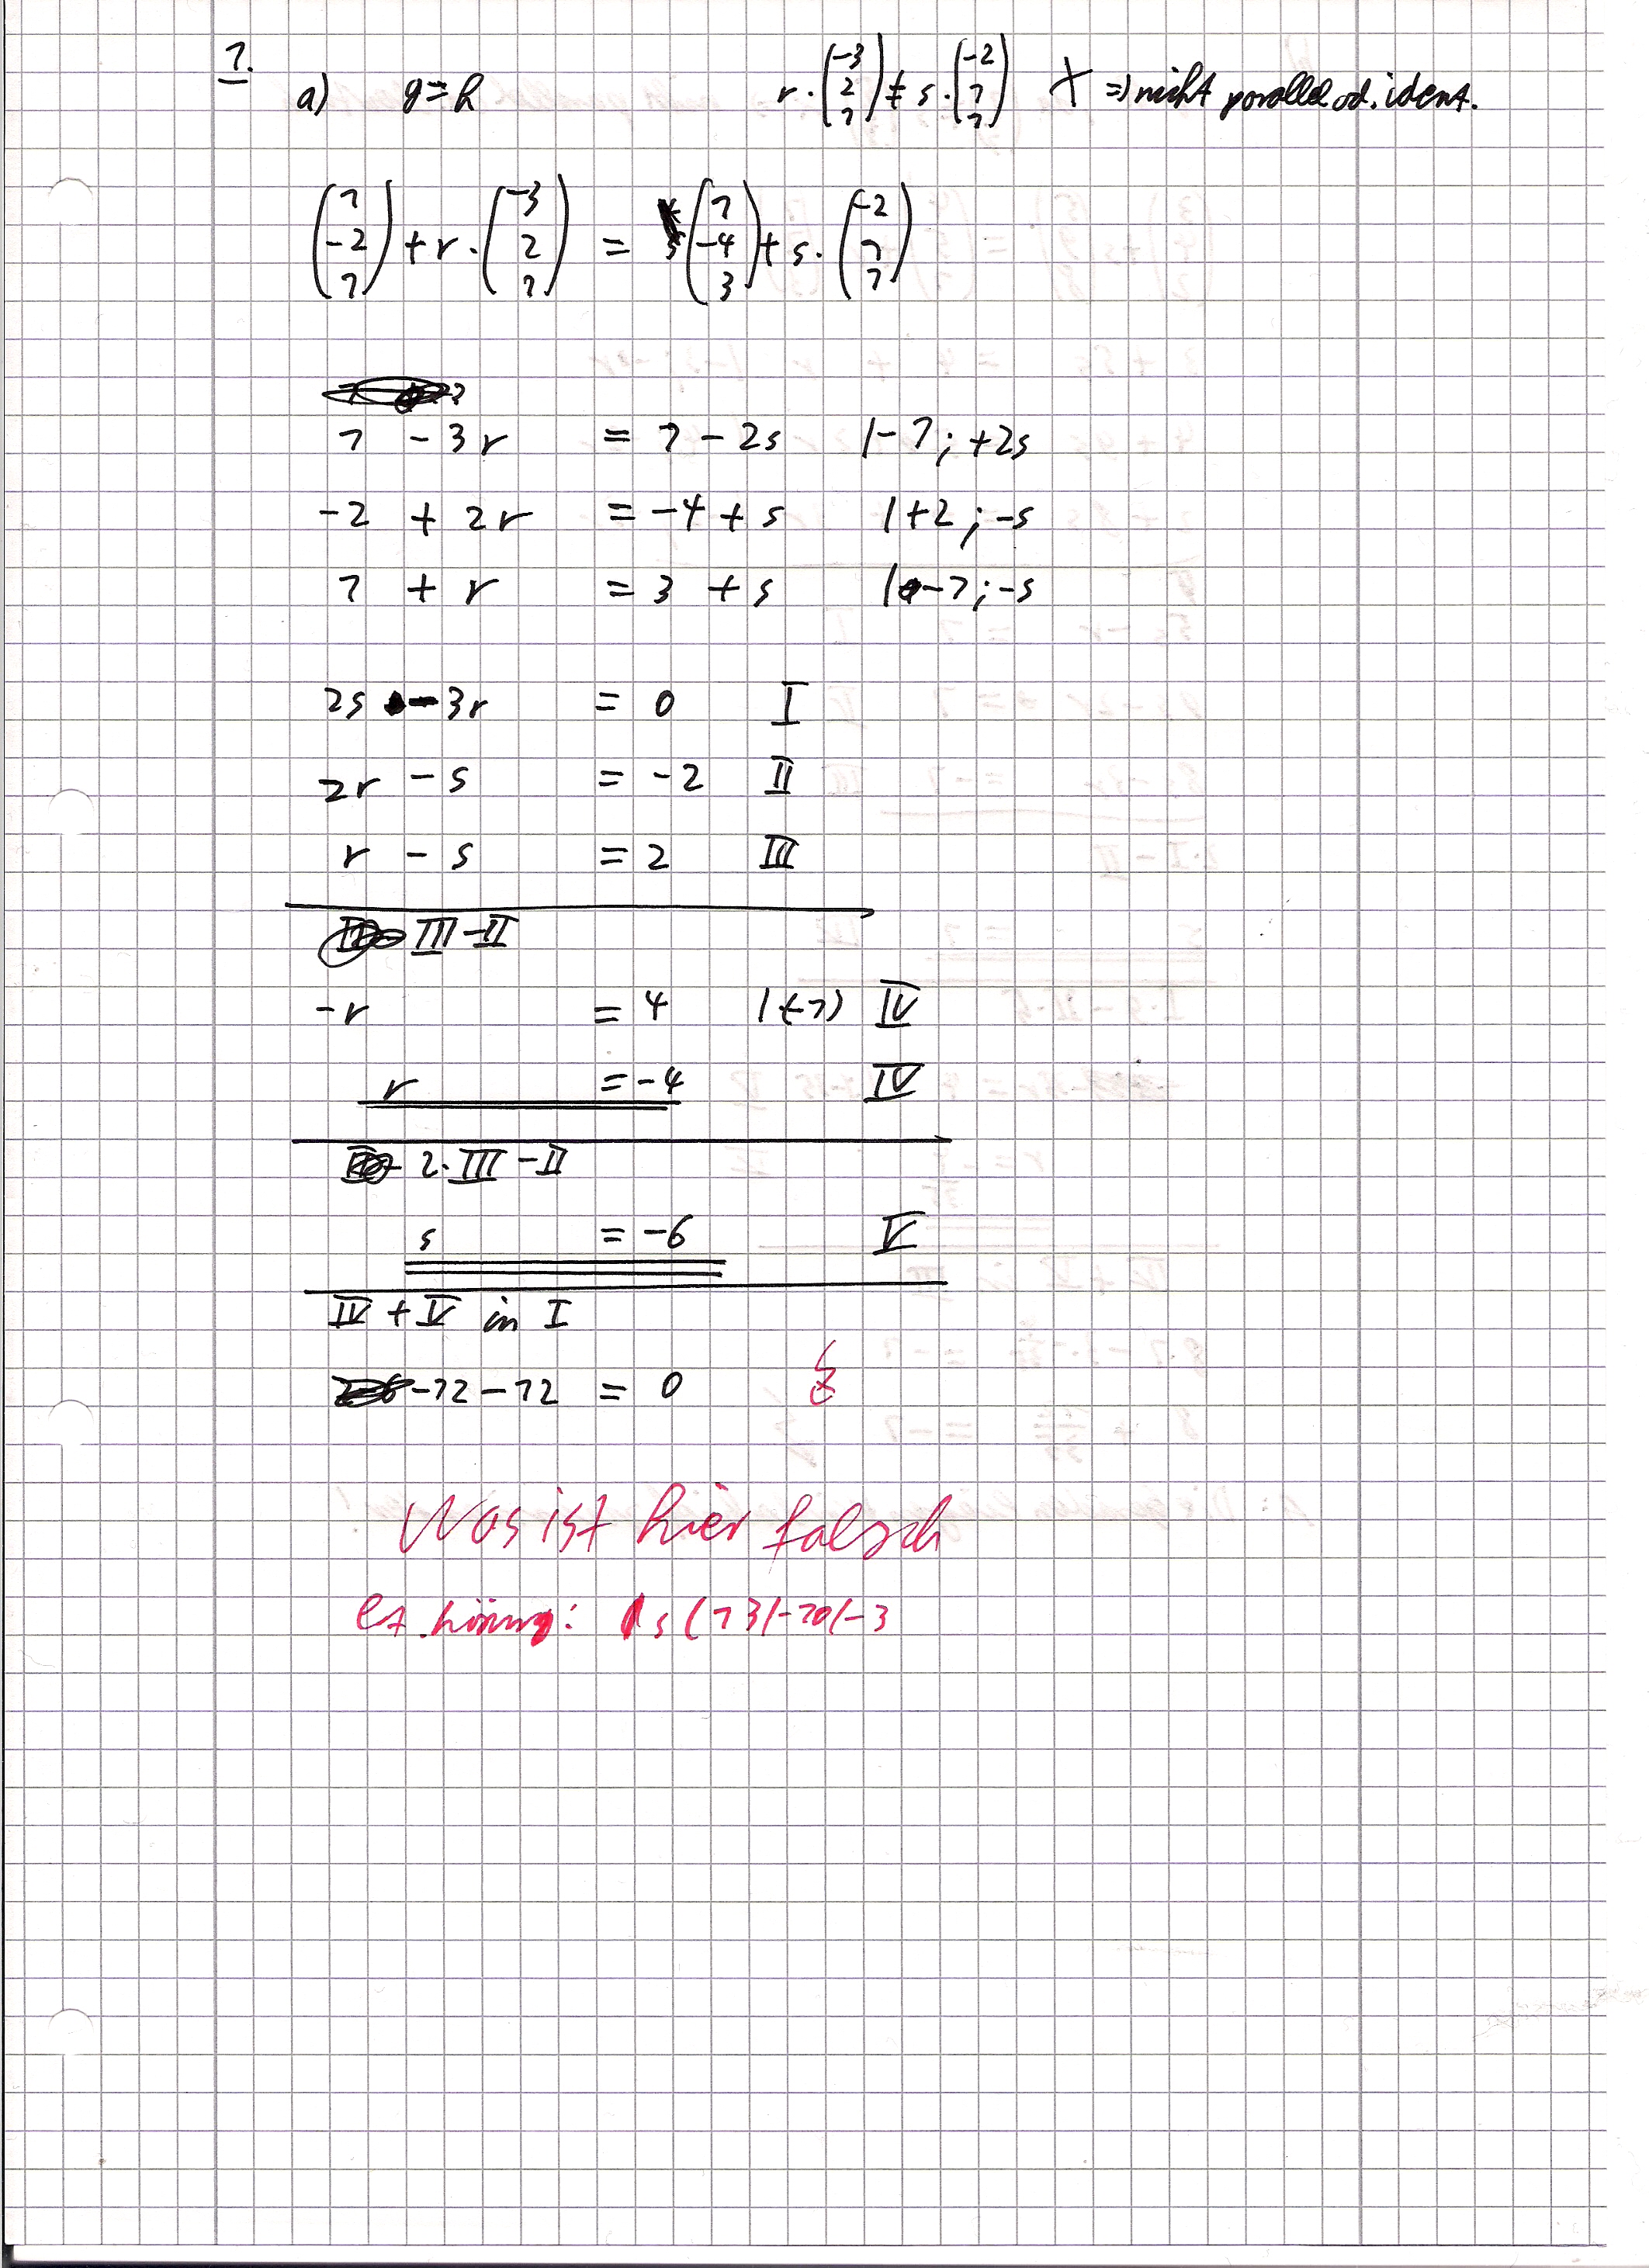 1.
a) g=h r·(-3 2 1) ≠ s·(-2 1 1) => nicht parallel od. ident.
(1 -2 1) + r·(-3 2 1) = (1 -4 3) + s·(-2 1 1)
1 - 3r = 1 - 2s |-1; +2s
-2 + 2r = -4 + s |+2; -s
1 + r = 3 + s |-1; -s
2s - 3r = 0 I
2r - s = -2 II
r - s = 2 III
III - II
-r = 4 |(-1) IV
r = -4 IV
2·III - II
s = -6 V
IV + V in I
-12 - 12 = 0
Was ist hier falsch
s(13|-10|-3